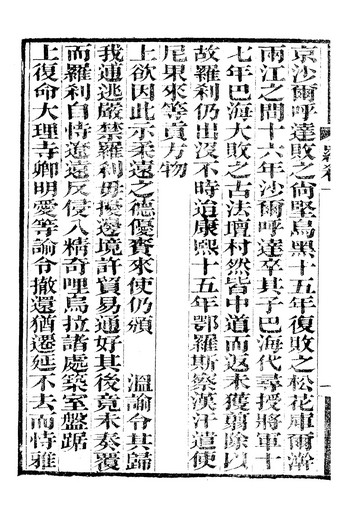 京沙爾呼達敗之尙堅烏黑十五年復敗之松花庫爾瀚
兩江之間十六年沙爾呼達卒其子巴海代尋授將軍十
七年巴海大敗之古法壇村然皆中道而返未獲翦除以
故羅刹仍出沒不時迨康熙十五年鄂羅斯察漢汗遣使
尼果來等貢方物
上欲因此示柔遠之德優賚來使仍頒 溫諭令其歸
我逋逃嚴禁羅刹毋擾邊境許貿易通好其後竟未奏覆
而羅刹自恃遼遠反侵入精奇哩烏拉諸處築室盤踞
上復命大理寺卿明愛等諭令撤還猶遷延不去而恃雅